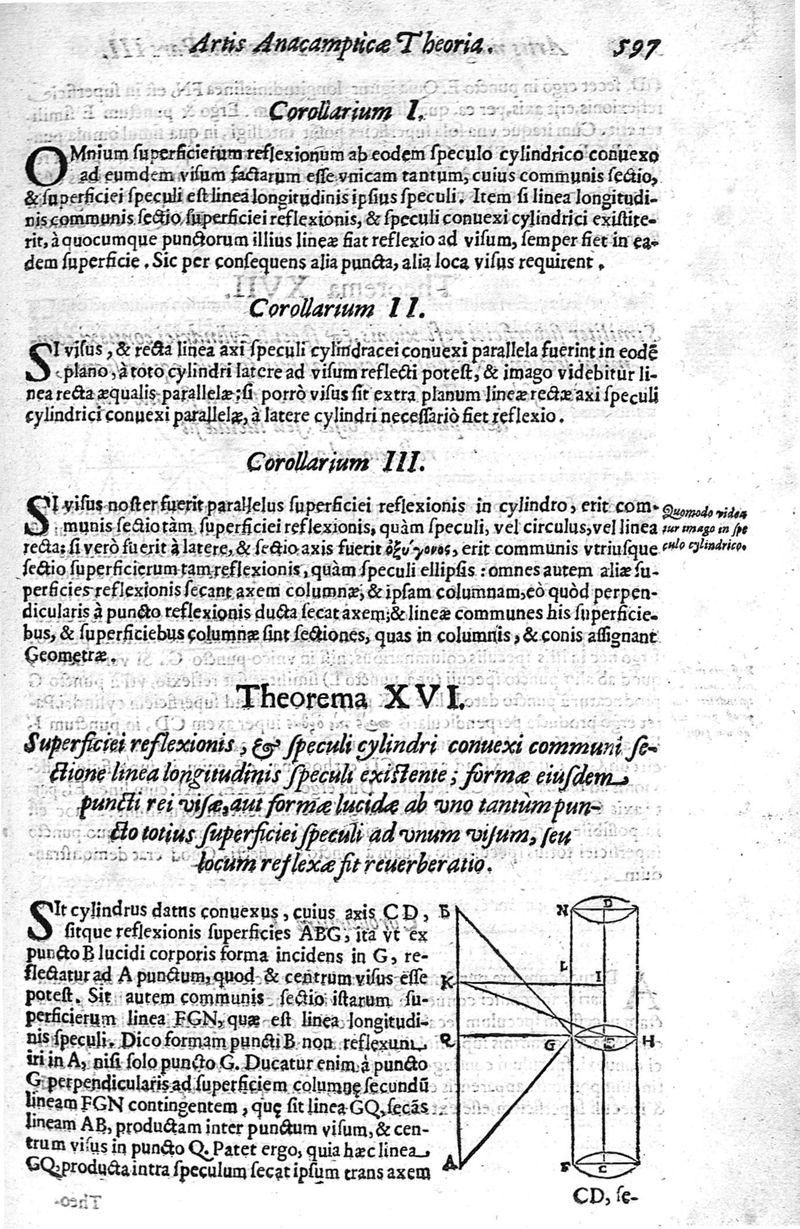 Artis Anacampticæ Theoria. 597
Corollarium I.
OMnium superficierum reflexionum ab eodem speculo cylindrico conuexo
ad eumdem visum factarum esse vnicam tantum, cuius communis sectio,
& superficiei speculi est linea longitudinis ipsius speculi. Item si linea longitudi-
nis communis sectio superficiei reflexionis, & speculi conuexi cylindrici existite-
rit, à quocumque punctorum illius lineæ fiat reflexio ad visum, semper fiet in ea-
dem superficie. Sic per consequens alia puncta, alia loca visus requirent.
Corollarium II.
SI visus, & recta linea axi speculi cylindracei conuexi parallela fuerint in eodē
plano, à toto cylindri latere ad visum reflecti potest, & imago videbitur li-
nea recta æqualis parallelæ; si porrò visus sit extra planum lineæ rectæ axi speculi
cylindrici conuexi parallelæ, à latere cylindri necessariò fiet reflexio.
Corollarium III.
SI visus noster fuerit parallelus superficiei reflexionis in cylindro, erit com-
munis sectio tàm superficiei reflexionis, quàm speculi, vel circulus, vel linea
recta: si verò fuerit à latere, & sectio axis fuerit ὀξύγονος, erit communis vtriusque
sectio superficierum tam reflexionis, quàm speculi ellipsis: omnes autem aliæ su-
perficies reflexionis secant axem columnæ, & ipsam columnam, eò quòd perpen-
dicularis à puncto reflexionis ducta secat axem; & lineæ communes his superficie-
bus, & superficiebus columnæ sint sectiones, quas in columnis, & conis assignant
Geometræ.
Quomodo videa
tur imago in spe
culo cylindrico.
Theorema XVI.
Superficiei reflexionis, & speculi cylindri conuexi communi se-
ctione linea longitudinis speculi existente; formæ eiusdem
puncti rei visæ, aut formæ lucidæ ab vno tantùm pun-
cto totius superficiei speculi ad vnum visum, seu
locum reflexæ fit reuerberatio.
SIt cylindrus datus conuexus, cuius axis CD,
sitque reflexionis superficies ABG, ita vt ex
puncto B lucidi corporis forma incidens in G, re-
flectatur ad A punctum, quod & centrum visus esse
potest. Sit autem communis sectio istarum su-
perficierum linea FGN, quæ est linea longitudi-
nis speculi. Dico formam puncti B non reflexum
iri in A, nisi solo puncto G. Ducatur enim à puncto
G perpendicularis ad superficiem columnę secundū
lineam FGN contingentem, quę sit linea GQ, secās
lineam AB, productam inter punctum visum, & cen-
trum visus in puncto Q. Patet ergo, quia hæc linea
GQ producta intra speculum secat ipsum trans axem
B N D
K L I
Q G E H
A F C
CD, se-